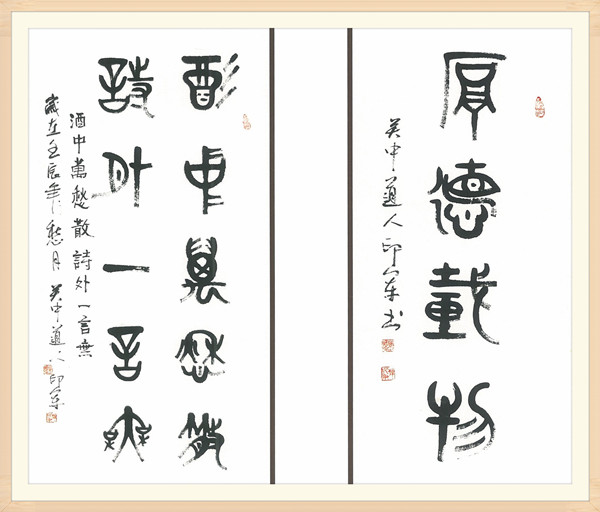 厚德載物
吴中道人印军书
酒中萬愁散
詩外一言無
酒中萬愁散詩外一言無
歲在壬辰年仁愁月吴中道人印军